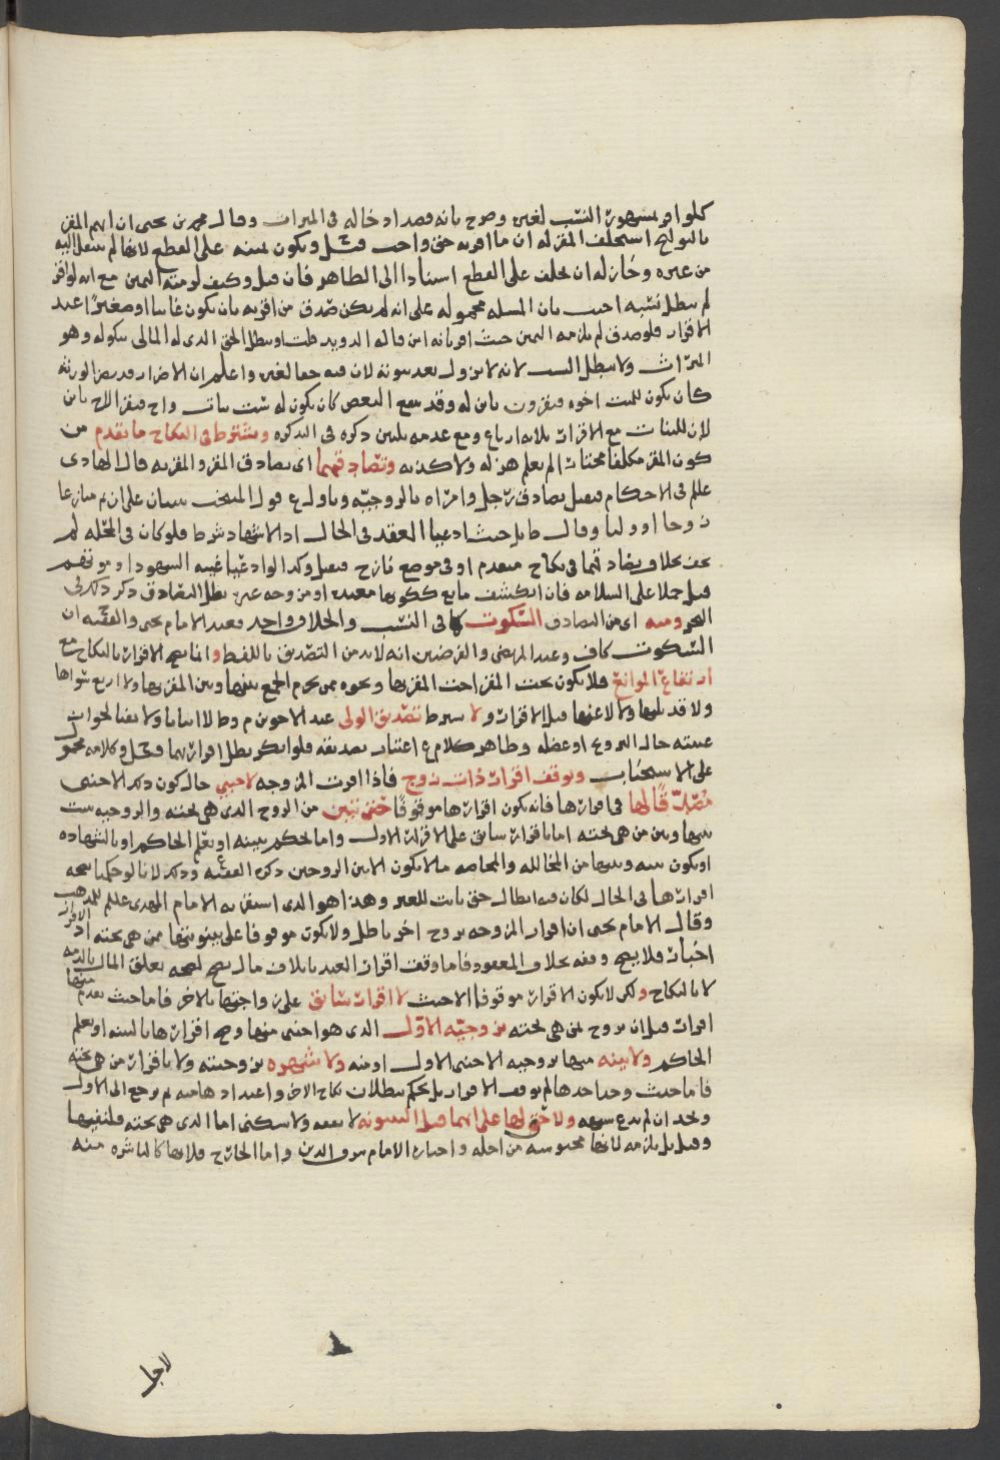 كلوا قر بمشهور النسب لغيره وصرح بانه قصد ادخاله في الميراث وقال محمد بن يحيى ان اتهم المقر
بالتوليج استحلف المقر له ان ما اقر به حق واجب قيل ويكون يمينه على القطع لانها لم تنتقل اليه
من غيره وجاز له ان يحلف على القطع استنادا الى الظاهر فان قيل وكيف لزمته اليمين مع انه لو اقر
لم يبطل نسبه اجيب بان المسله محموله على انه لم يكن صدق من اقر به بان يكون غايبا او صغيرا عند
الاقرار فلو صدق لم يلزمه اليمين حيث اقر بانه ابن قال له الدويد قلت او يبطل الحق الذي له المالي بنكوله وهو
الميراث ولا يبطل النسب لانه لا يزول بعد ثبوته لان فيه حقا لغيره واعلم ان الاضرار قد يضر الورثه
كان يكون للميت اخوه فيقرون بابن له وقد ينفع البعض كان يكون له ست بنات واخ فيقر الاخ بابن
لان للبنات مع الاقرار ثلاثه ارباع ومع عدمه ثلثين ذكره في التذكره ويشترط في النكاح ما تقدم من
كون المقر مكلفا مختارا لم يعلم هزله ولا كذبه وتصادقهما اى تصادق المقر والمقر به قال الهادي
عللم في الاحكام فيقبل تصادق رجل وامراه بالزوجيه وتاول ع قول المنتخب يبينان على ان ثم منازعا
زوجا او وليا وقال ط بل حيث ادعيا العقد في الحال اذ الاشهاد شرط فلو كان في المحله لم
يخف بخلاف تصادقهما في نكاح متقدم او في موضع نازح فيقبل وكذا لو ادعيا غيبه الشهود او موتهم
قيل حملا على السلامه فان انكشف مانع ككونها معتده او مزوجه غيره بطل التصادق ذكر ذلك في
البحر ومنه اى من التصادق السكوت كما في النسب والخلاف واحد فعند الامام يحيى والفقيه ان
السكوت كاف وعند المرتضى والفرضيين انه لا بد من التصديق باللفظ وانما يصح الاقرار بالنكاح مع
ارتفاع الموانع فلا يكون تحت المقر اخت المقر بها ونحوه ممن يحرم الجمع بينها وبين المقر بها ولا اربع سواها
ولا قد ثلثها ولا لاعنها قبل الاقرار ولا يشترط تصديق الولي عند الاخوين م وط لا اثباتا ولا نفيا لجواز
غيبته حال التزوج او عضله وظاهر كلام ع اعتبار تصديقه فلو انكر بطل اقرارهما قيل وكلامه محمول
على الاستحباب ويوقف اقرار ذات زوج فاذا اقرت المزوجه لاجنبي حال كون ذلك الاجنبي
مصدقا لها في اقرارها فانه يكون اقرارها موقوفا حتى تبين من الزوج الذي هي تحته والزوجيه ثبت
بينها وبين من هي تحته اما باقرار سابق على الاقرار الاول واما بحكم ببينه او بعلم الحاكم او بالشهاده
او يكون بينه وبينها من المخالله والمخاصه ما لا يكون الا بين الزوجين ذكره الفقيه ع وذلك لانا لو حكمنا بصحه
اقرارها في الحال لكان فيه ابطال حق ثابت للغير وهذا هو الذي استقر به الامام المهدى عللم للمذهب
وقال الامام يحيى ان اقرار المزوجه بزوج اخر باطل ولا يكون موقوفا على بينونتها ممن هي تحته اذ الاقرار
اخبار فلا يصح وقفه بخلاف العقود فاما وقف اقرار العبد باتلاف مال فصح لصحه تعلق المال بالذمه
لا بالنكاح ولكن لا يكون الاقرار موقوفا الا حيث لا اقرار سابق على زواجتها بالاخر فاما حيث تقدم منها
اقرار قبل ان تزوج بمن هي تحته بزوجيه الاول الذي هو اجنبي منها وصح اقرارها بالبينه او بعلم
الحاكم ولا بينه منها بزوجيه الاجنبي الاول او منه ولا شهره بزوجيته ولا باقرار من هي تحته
فاما حيث وجد احدها لم يوقف الاقرار بل يحكم ببطلان نكاح الاخر واعتدادها منه ثم ترجع الى الاول
وتحد ان لم تدع شبهه ولا حق لها عليهما قبل البينونه لا نفقه ولا سكنى اما الذي هي تحته فلنفيها
وقيل بل يلزمه لانها محبوسه من اجله واختاره الامام شرف الدين واما الخارج فلانها كالناشزه منه
لاجل